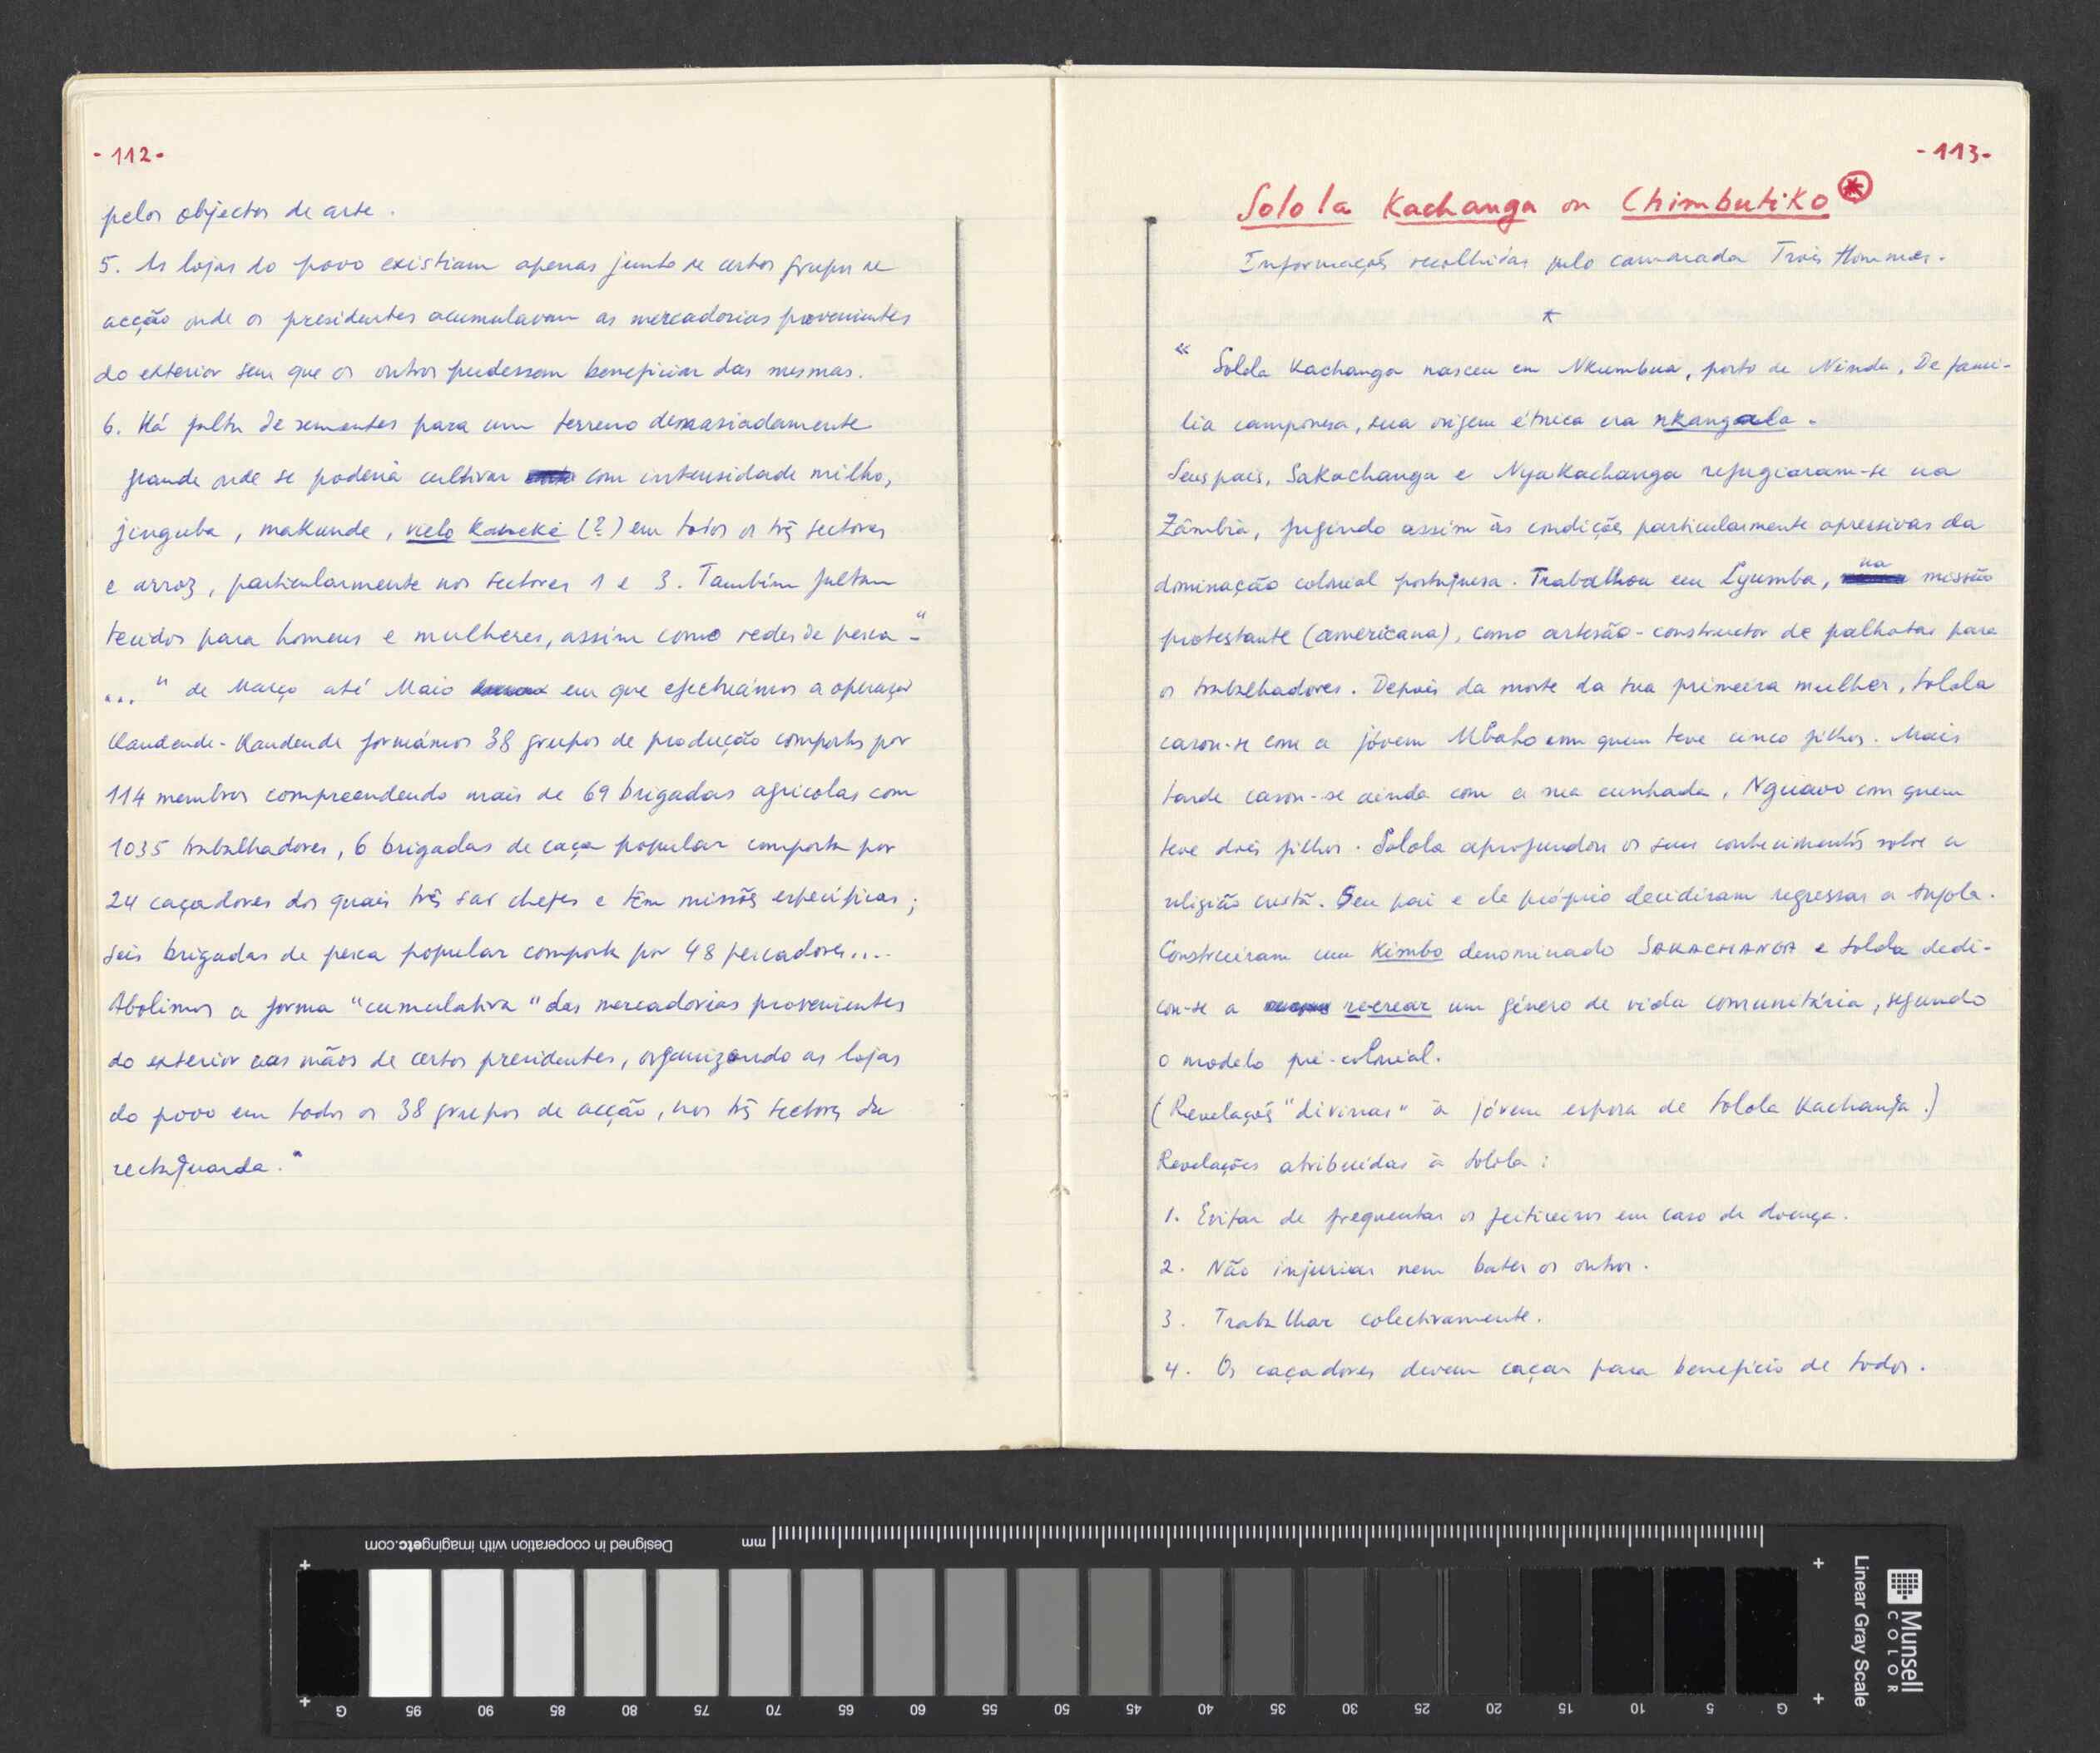 - 112 -
pelos objectos de arte.
5. As lojas do povo existiam apenas junto de certos grupos de
acção onde os presidentes acumulavam as mercadorias provenientes
do exterior sem que os outros pudessem beneficiar das mesmas.
6. Há falta de sementes para um terreno demasiadamente
grande onde se poderia cultivar com intensidade milho,
jinguba, makunde, vielo (?) em todos os três sectores
e arroz, particularmente nos sectores 1 e 3. Também faltam
tecidos para homens e mulheres, assim como redes de pesca -"
..." de Março até Maio em que efectuámos a operação
formámos 38 grupos de produção compostos por
114 membros compreendendo mais de 69 brigadas agrícolas com
1035 trabalhadores, 6 brigadas de caça popular composta por
24 caçadores dos quais três são chefes e têm missões específicas;
seis brigadas de pesca popular composta por 48 pescadores....
Abolimos a forma "cumulativa" das mercadorias provenientes
do exterior nas mãos de certos presidentes, organizando as lojas
do povo em todos os 38 grupos de acção, nos três sectores da
rectaguarda."
- 113 -
Solola Kachanga ou Chimbutiko *
Informações recolhidas pelo camarada Trois Hommes.
*
" Solola Kachanga nasceu em Nkumbua, perto de Ninda. De famí-
lia camponesa, sua origem étnica era nkangala.
Seus pais, Sakachanga e Nyakachanga refugiaram-se na
Zâmbia, fugindo assim às condições particularmente opressivas da
dominação colonial portuguesa. Trabalhou em Lyumba, na missão
protestante (americana), como artesão-constructor de palhotas para
os trabalhadores. Depois da morte da sua primeira mulher, Solola
casou-se com a jóvem Mbaho com quem teve cinco filhos. Mais
tarde casou-se ainda com a sua cunhada, Nguavo com quem
teve dois filhos. Solola aprofundou os seus conhecimentos sobre a
religião cristã. Seu pai e ele próprio decidiram regressar a Angola.
Construiram um Kimbo denominado SAKACHANGA e Solola dedi-
cou-se a recrear um género de vida comunitária, segundo
o modelo pré-colonial.
(Revelações "divinas" à jóvem esposa de Solola Kachanga.)
Revelações atribuídas à Solola:
1. Evitar de frequentar os feiticeiros em caso de doença.
2. Não injuriar nem bater os outros.
3. Trabalhar colectivamente.
4. Os caçadores devem caçar para benefício de todos.
Designed in cooperation with imagingetc.com
mm
Munsell
COLOR
Linear Gray Scale
G 95 90 85 80 75 70 65 60 55 50 45 40 35 30 25 20 15 10 5 G